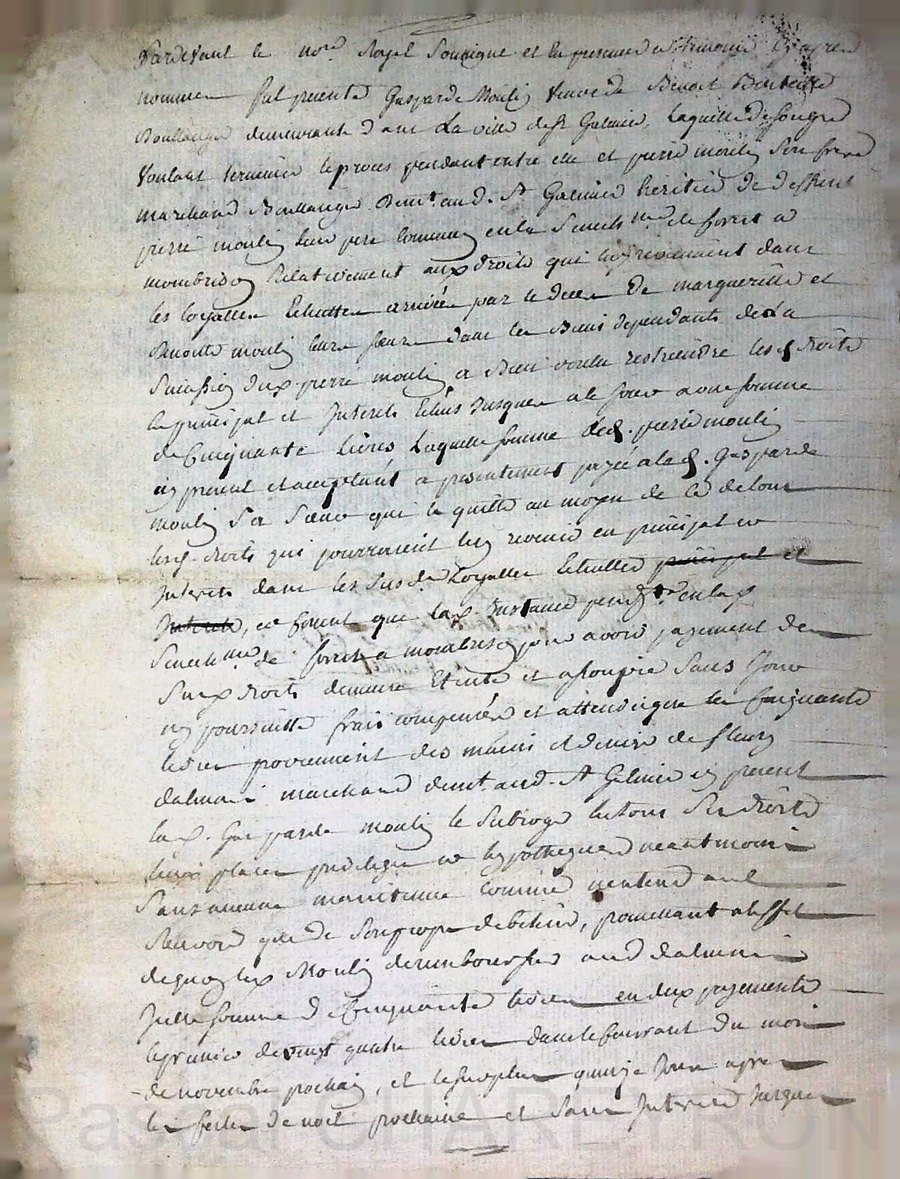 Pardevant le no.re Royal Soussigné et en presence des temoins cy apres
nommes fut presente Gasparde Mouli veuve de Benoit
Boullanger demeurante dans La ville de St Galmier, laquelle de son gré
Voulant terminer le proces pendant entre elle et pierre mouli Son frere
marchand Boullanger Dem.t aud. St Galmier heritier de deffunt
pierre mouli leur pere commun en la Senech.ee de forest a
montbrison Relativement aux droits qui luy reviennent dans
les loyalles Echuttes arrivées par le decès De margueritte et
Benoite mouli leurs soeurs dans les Biens dependants de La
Succession dud. pierre mouli a Bien voulu restreindre lesd droits
en principal et Interets Echus Jusques a ce Jour a une somme
de Cinquante Livres Laquelle somme led. pierre mouli
icy present et acceptant a presentement payée a lad. Gasparde
mouli Sa Soeur que le quitte au moyen de ce de tous
lesd. droits qui pourroient luy revenir en principal et
Interets dans les Susd. Loyalles Echuttes principal et
Interets, et consent que lad. Instance pend.te en lad
Senech.ee de forest a montbrison pour avoir payement de
Susd. droits demeure Eteinte et assoupie Sans y
poursuitte frais compensés et attendu que les Cinquante
livres proviennent des mains et deniers de fleury
dalmais marchand dem.t aud. St Galmier icy present
lad. Gasparde mouli le Subroge en tous Ses droits
lieux places privileges et hypotheques neantmoins
Sans aucune maintenue comme n'entend
que de Son propre debiteur, promettant a l'effet
de quoy led. Mouli de rembourser aud dalmais
somme de Cinquante livres en deux payements
le premier de vingt quatre livres dans le courrant du mois
de novembre prochain, et le surplus quinze Jours apres
les festes de noel prochaine et Sans Interets Jusques
Pascal CHAREYRON